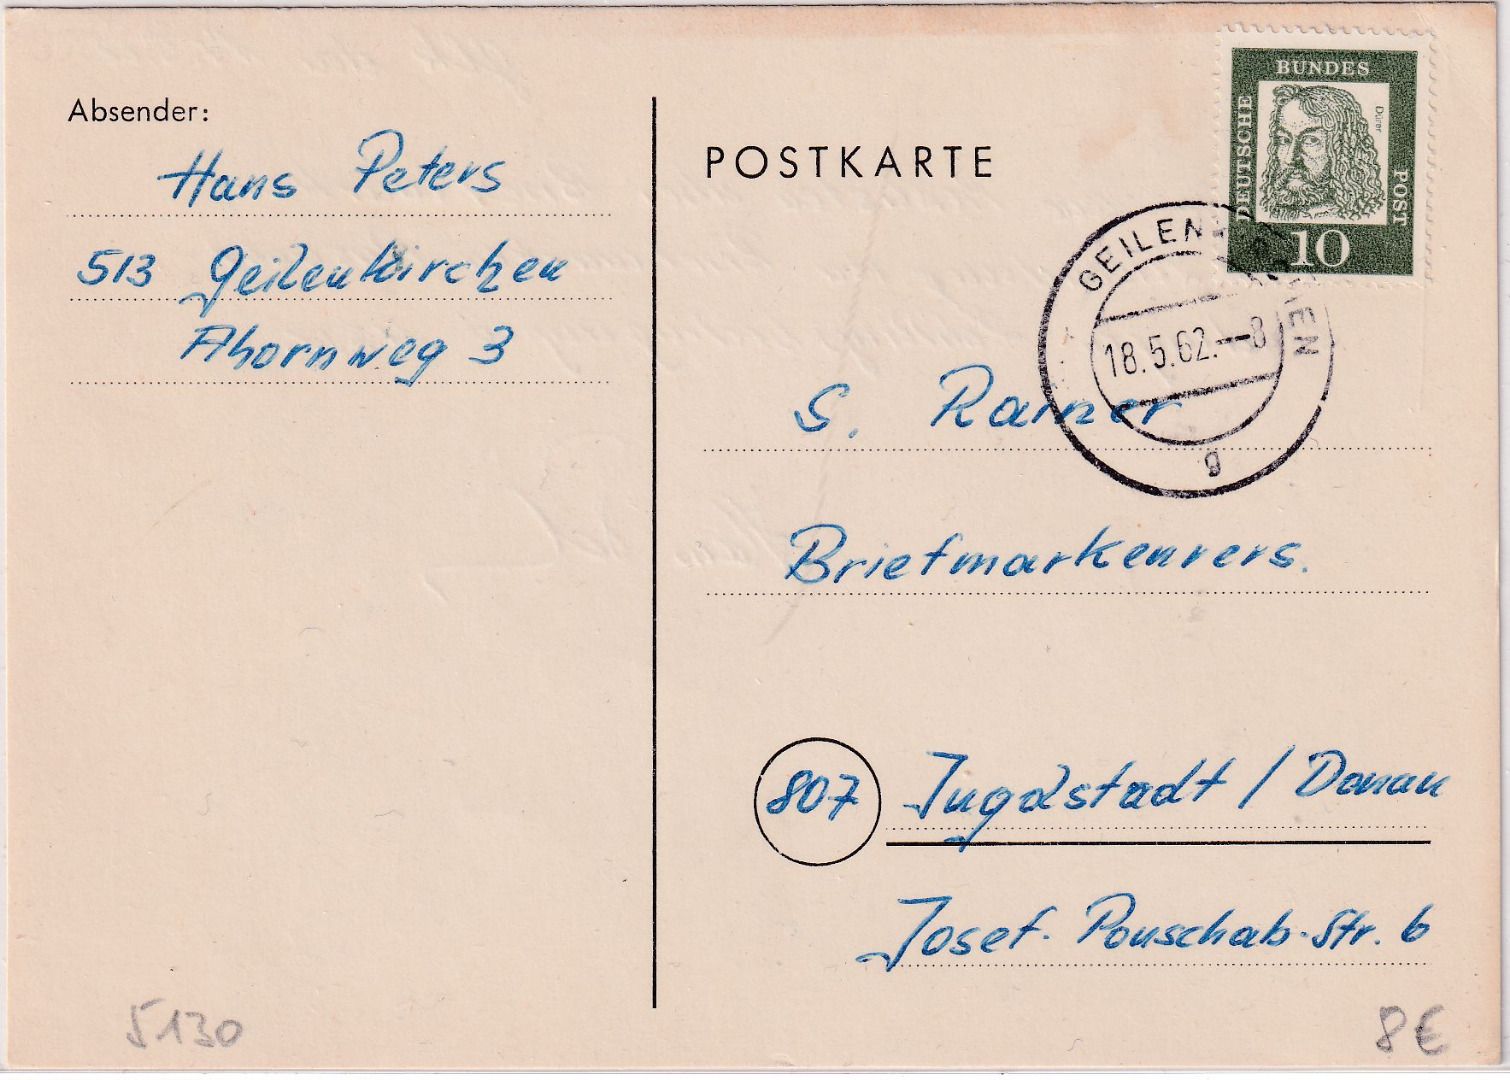 Absender:
Hans Peters
513 Geilenkirchen
Ahornweg 3
POSTKARTE
DEUTSCHE
BUNDES
POST
Dürer
10
GEILENKIRCHEN
18.5.62.-8
g
S. Rainer
Briefmarkenvers.
807 Ingolstadt / Donau
Josef-Ponschab-Str. 6
5130
8€